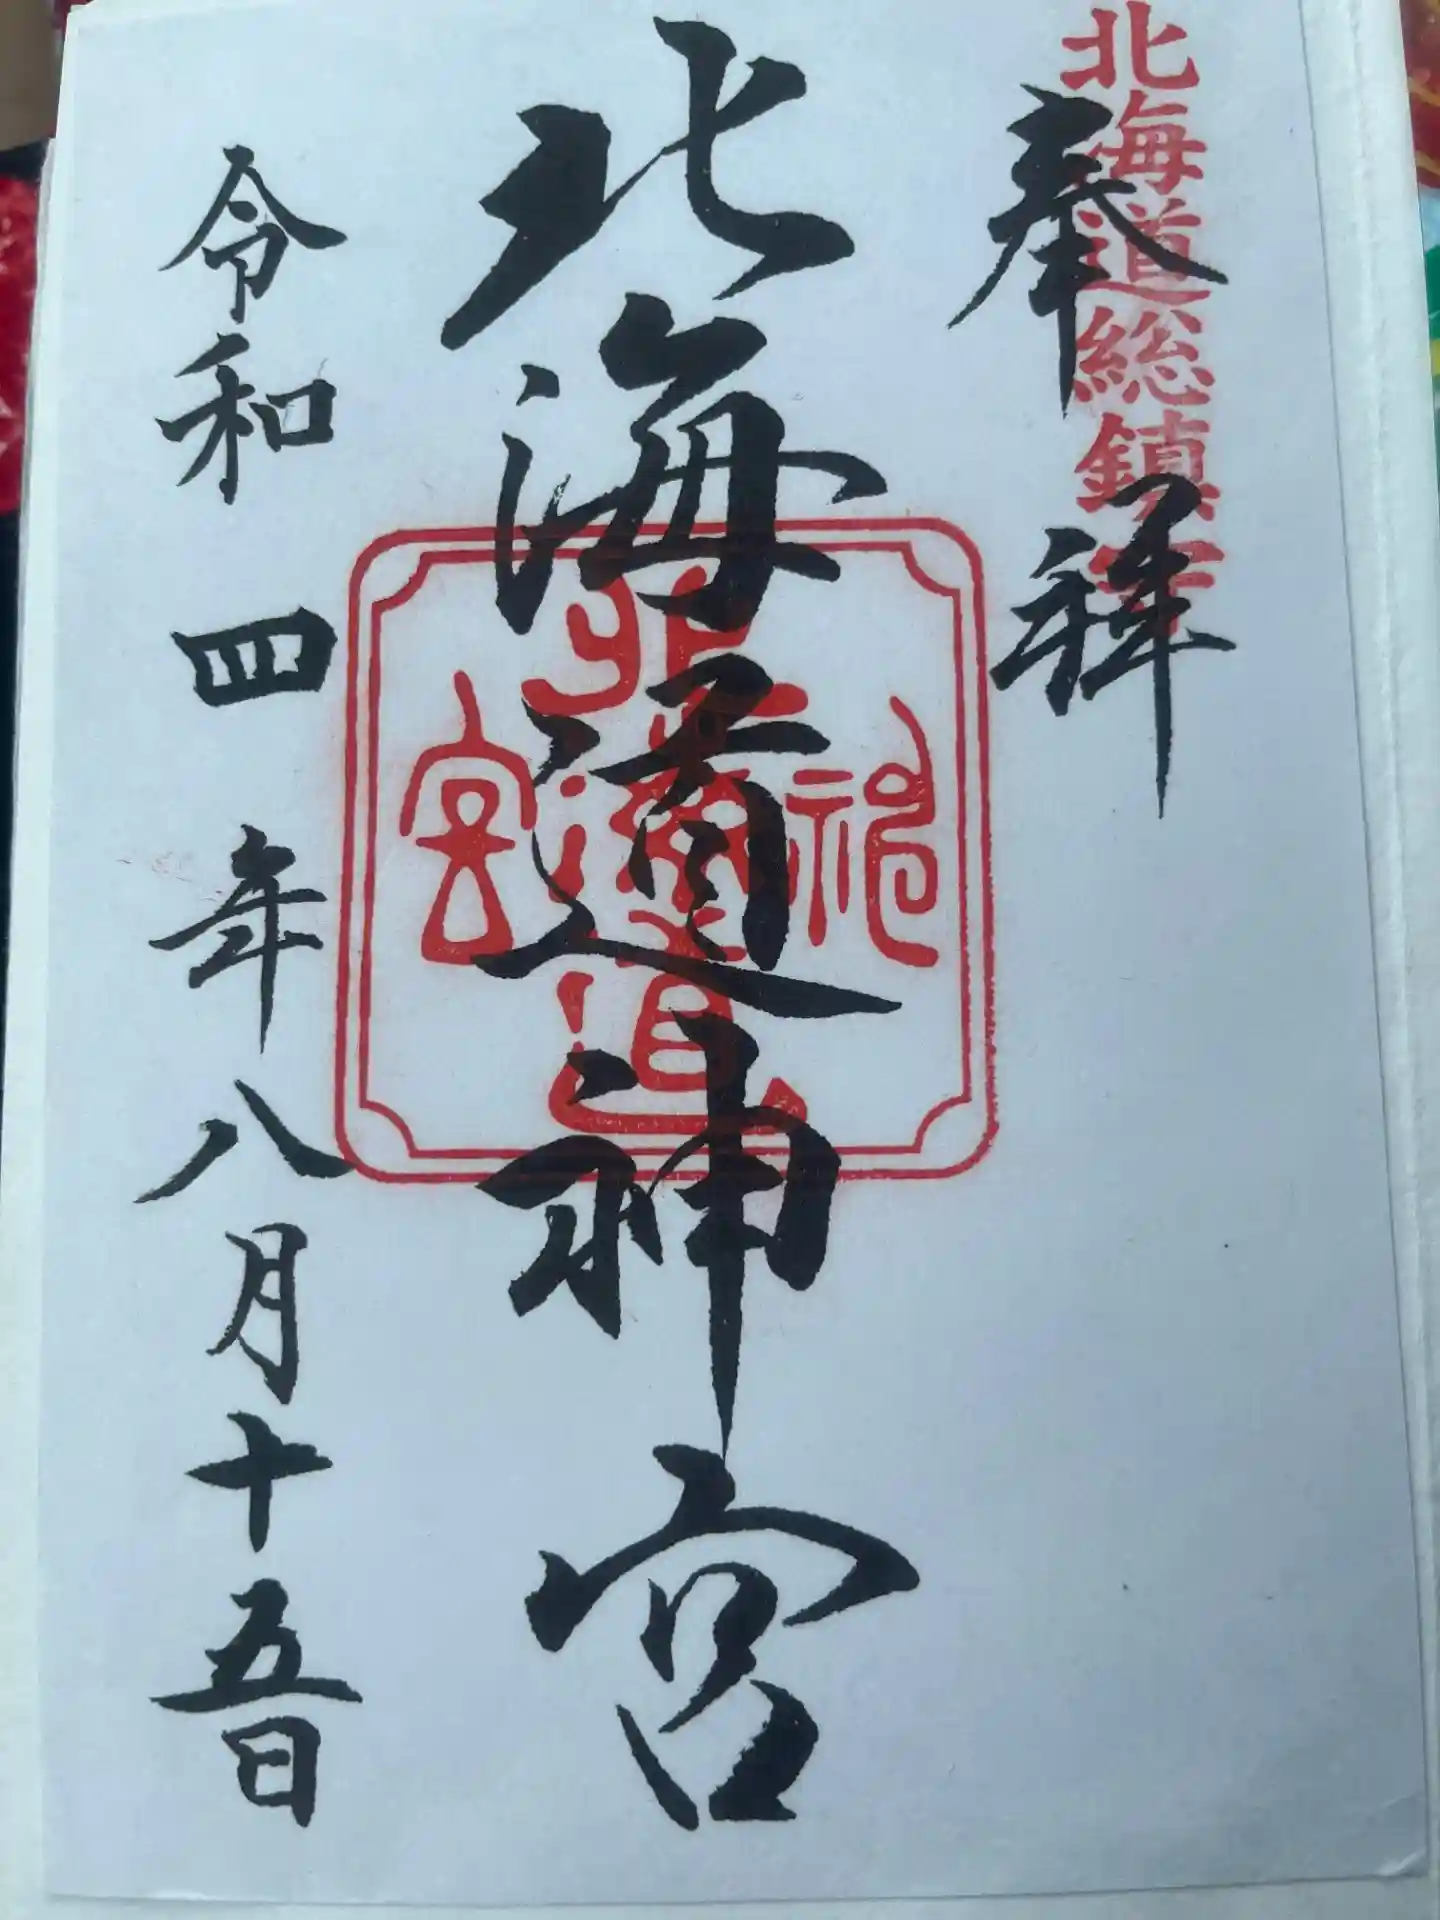 北海道総鎮守
奉拝
北海道神宮
北海道神宮
令和四年八月十五日